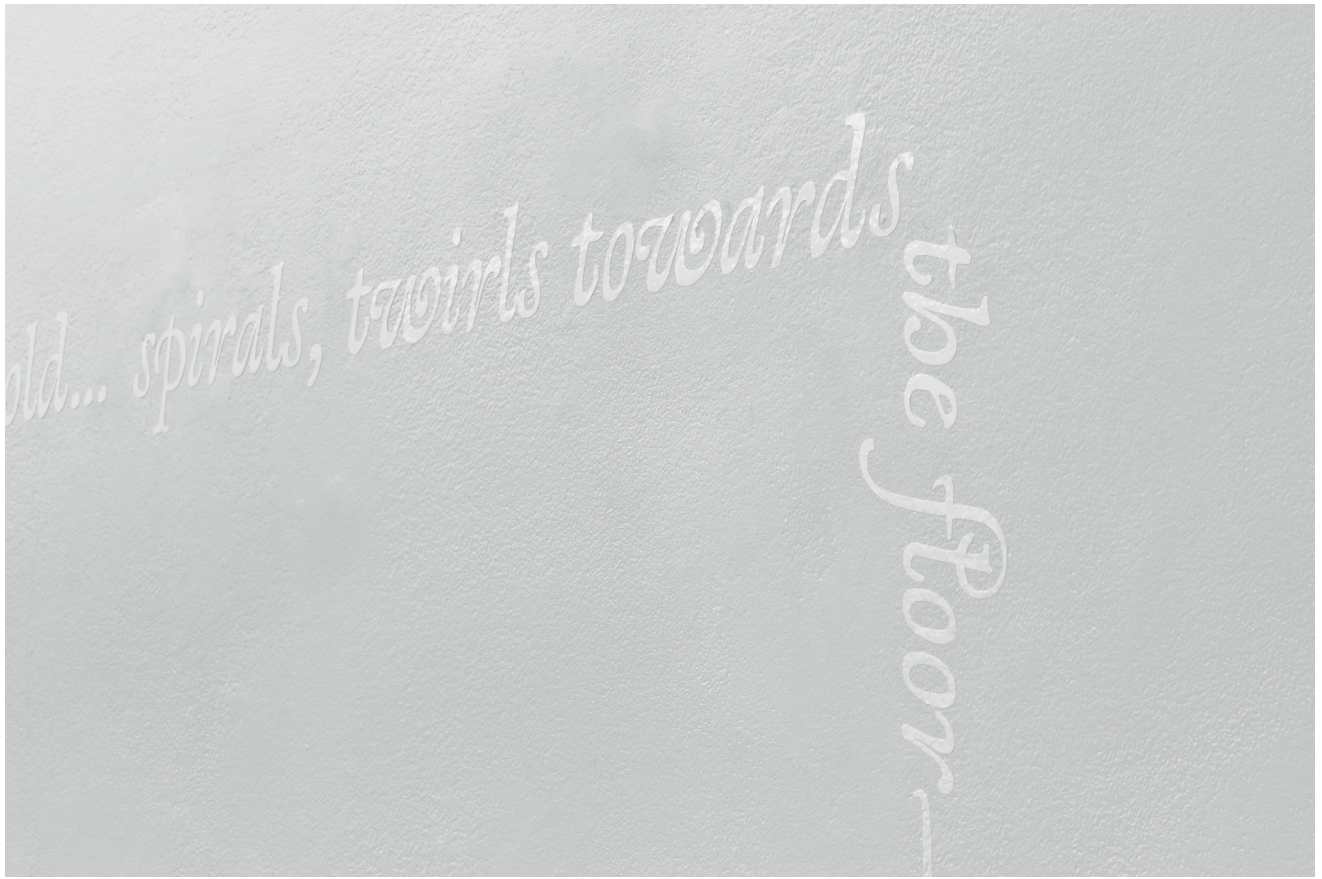 old... spirals, twirls towards
the floor